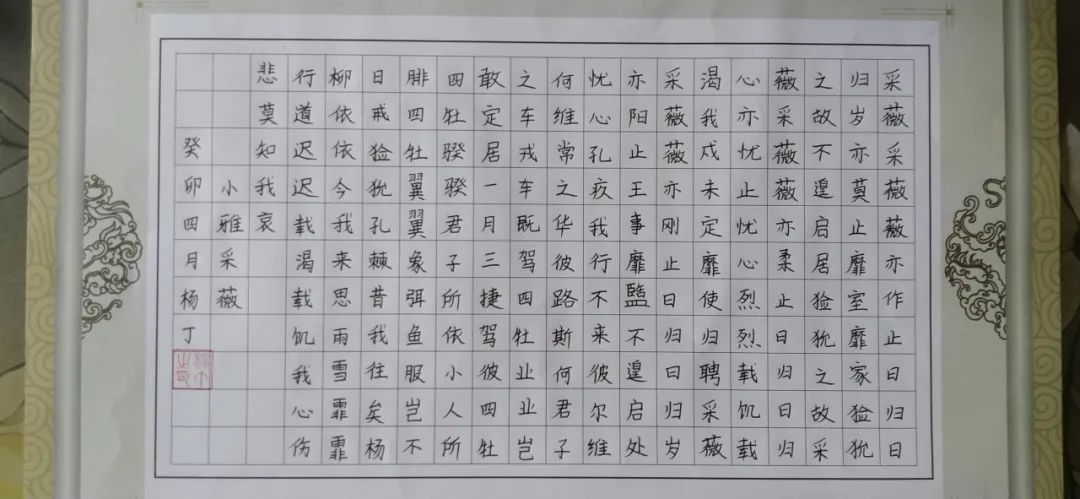 采薇采薇薇亦作止曰归曰
归岁亦莫止靡室靡家猃狁
之故不遑启居猃狁之故采
薇采薇薇亦柔止曰归曰归
心亦忧止忧心烈烈载饥载
渴我戍未定靡使归聘采薇
采薇薇亦刚止曰归曰归岁
亦阳止王事靡盬不遑启处
忧心孔疚我行不来彼尔维
何维常之华彼路斯何君子
之车戎车既驾四牡业业岂
敢定居一月三捷驾彼四牡
四牡骙骙君子所依小人所
腓四牡翼翼象弭鱼服岂不
日戒猃狁孔棘昔我往矣杨
柳依依今我来思雨雪霏霏
行道迟迟载渴载饥我心伤
悲莫知我哀
小雅采薇
癸卯四月杨丁